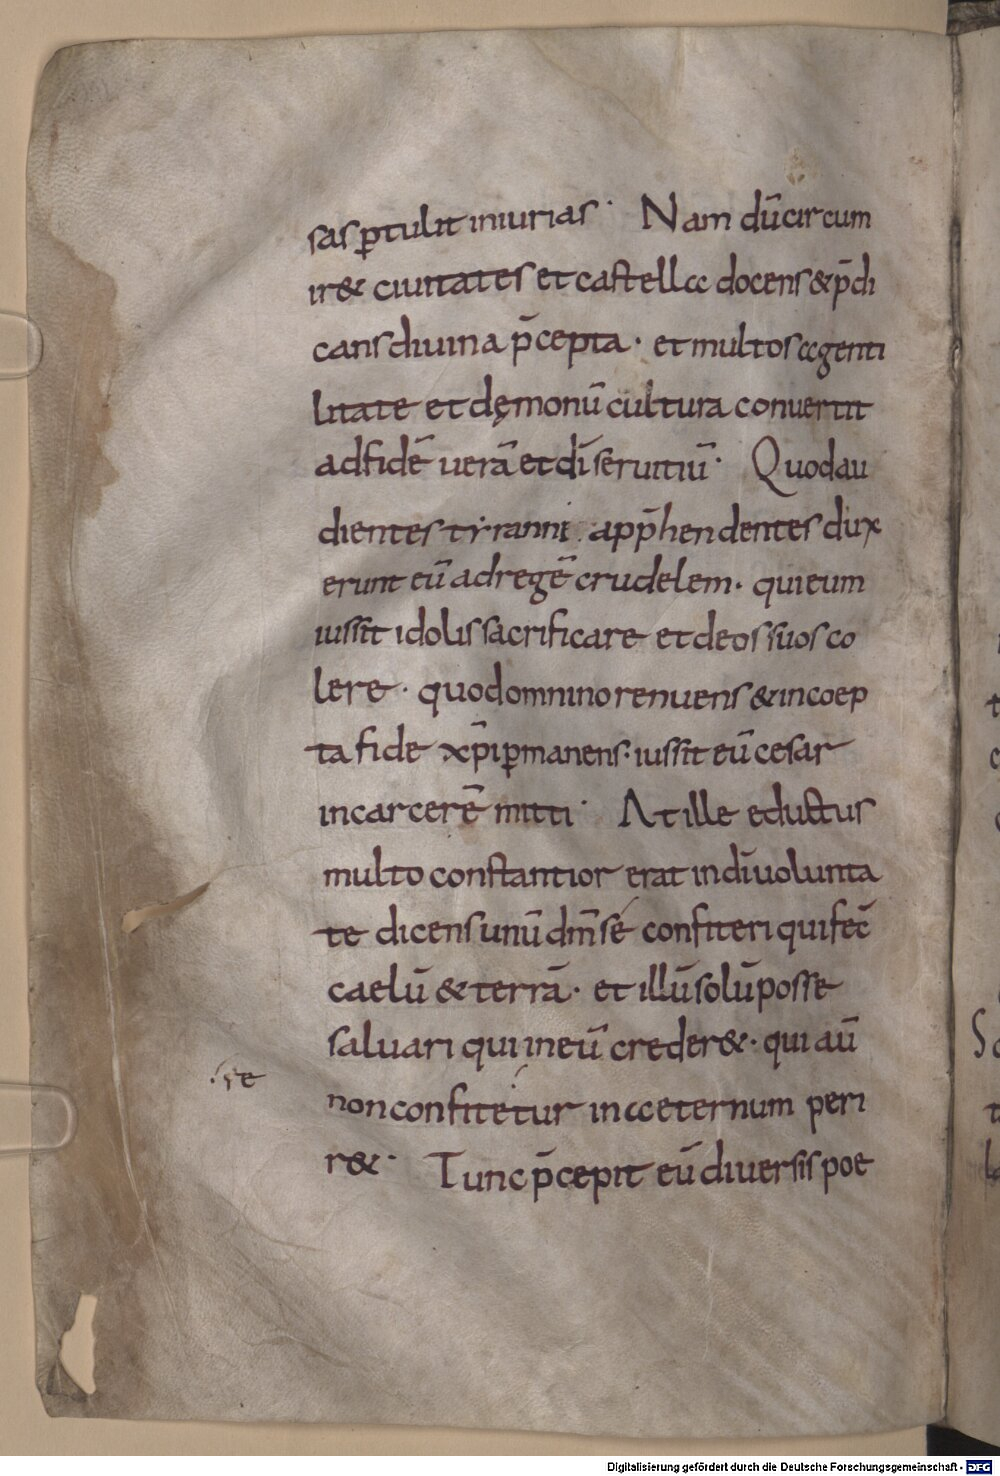 sas ꝑtulit iniurias· Nam dū circum
ir& ciuitates et castella docens & p̄di
cans diuina p̄cepta· et multos agenti
litate et dęmonū cultura conuertit
ad fidē uerā et dī seruitiū· Quod au
dientes tẏranni. app̄hendentes dux
erunt eū ad regē crudelem· qui eum
iussit idolis sacrificare et deos suos co
lere· quod omnino renuens & in coep
ta fide xp̄i ꝑmanens· iussit eū cesar
in carcerē mitti· At ille eductus
multo constantior erat in dī uolunta
te dicens unū dm̄ sé confiteri qui fec̄
caelū & terrā· et illū solū posse
saluari qui in eū creder&· qui aū
·/· se
non confitetur in aeternum peri
r&· Tunc p̄cepit eū diuersis poe
Digitalisierung gefördert durch die Deutsche Forschungsgemeinschaft - DFG